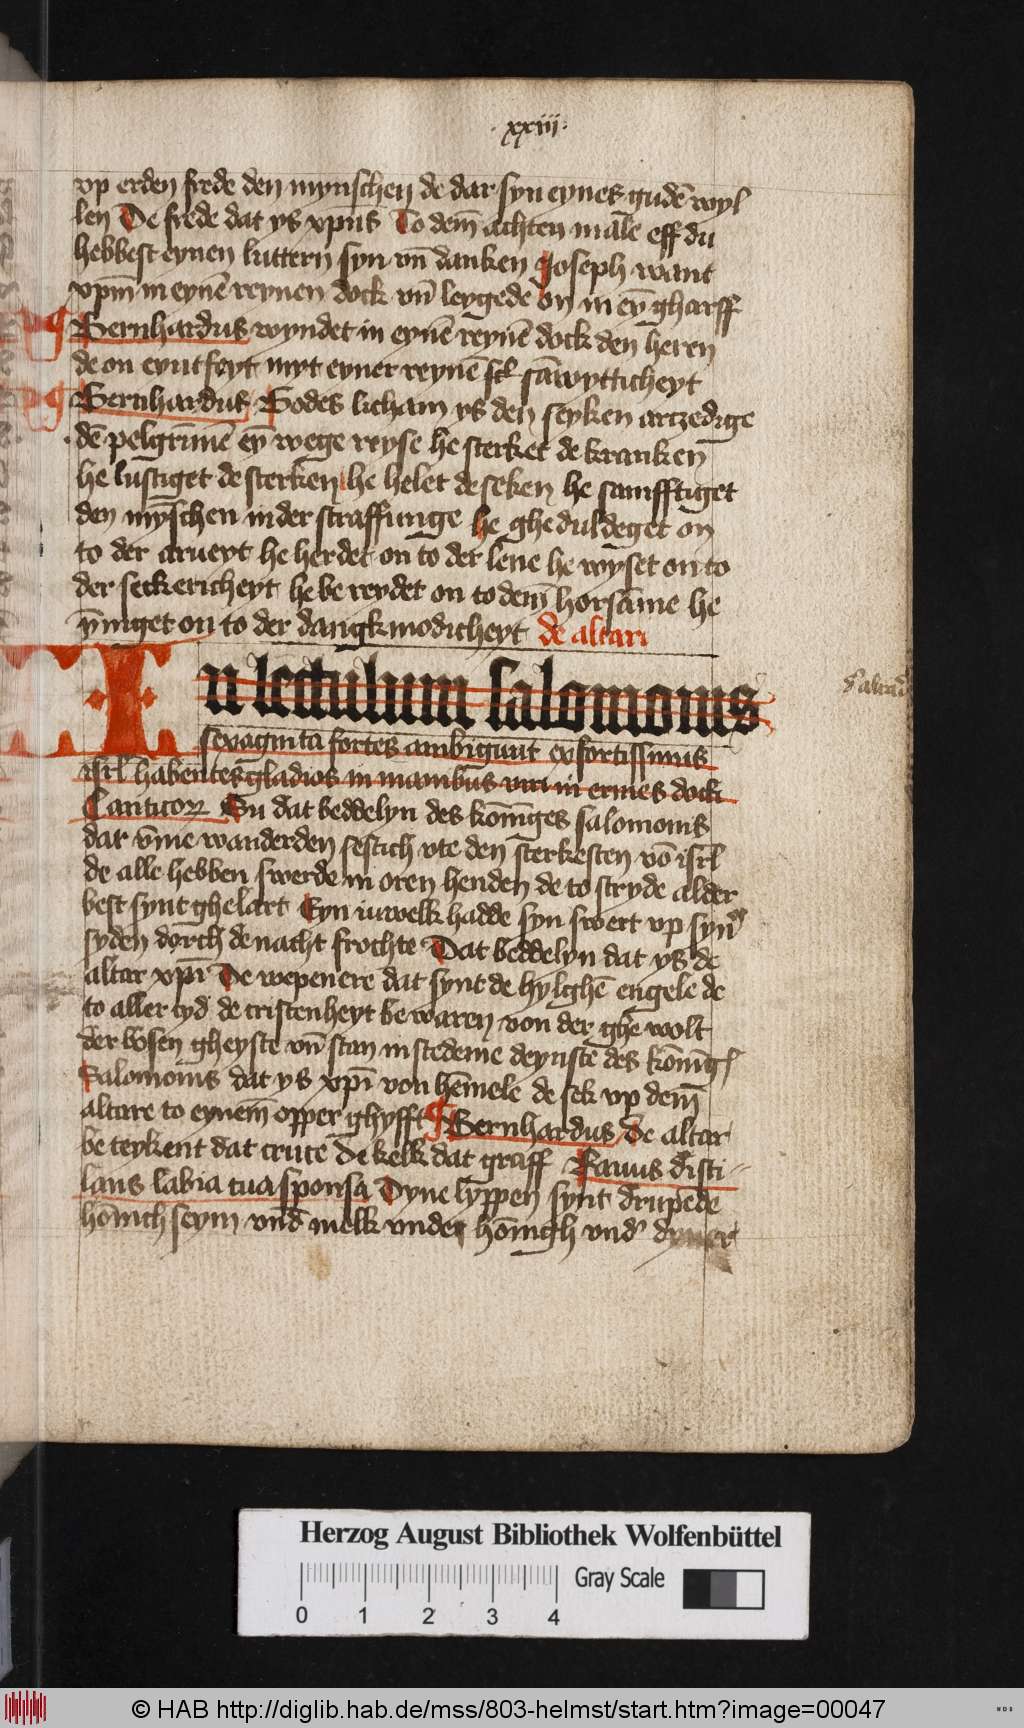 · xxiij ·
vp erden frede den mynschen de dar syn eynes gudē wyl
len De frede dat ys xpūs To dem̄ achten māle eff du
hebbest eynen luttern syn vn̄ danken Joseph want
xpm̄ in eynē reynen dock vn̄ leygede on in eyn̄ gharff
Bernhardus wyndet in eynē reynē dock den heren
de on eyntfeyt myt eyner reynē scl̄ sāwytticheyt
Bernhardus Godes licham ys den seyken artzedige
dē pelgrimē eyn̄ wege reyse he sterket de kranken
he lustiget de sterken he helet de seken he samfftiget
den mȳschen in der straffunge he ghe duldeget on
to der arueyt he herdet on to der lene he wyset on to
der seckericheyt he be reydet on to dem̄ horsāme he
ȳniget on to der dangkmodicheyt de altari
En lectulum salomonis
sexaginta fortes ambigunt ex fortissimis
isrl̄ habentes gladios in manibus viri in ermes dock
Canticoꝝ Su dat beddelyn des konīges salomonis
dar vm̄e wanderden sestich vte den sterkesten vō isrl̄
de alle hebben swerde in oren henden de to stryde alder
best synt ghelart Eyn iuwelk hadde syn swert vp synr̄
syden dorch de nacht frochte Dat beddelyn dat ys de
altar xpī De wepenere dat synt de hylghē engele de
to aller tyd de cristenheyt be waren von der ghe wolt
der bosen gheyste vn̄ stan in stedeme deynste des konīgs
Salomonis dat ys xpī von hēmele de sek vp dem̄
altare to eynem̄ opper ghyfft Bernhardus De altar
be teykent dat cruce De kelk dat graff Fauus disti
lans labia tua sponsa Dyne lyppen synt drupede
hōnich seym vnd̄ melk vnder hōnigh vnd̄ dyner
Herzog August Bibliothek Wolfenbüttel
0 1 2 3 4
Gray Scale
© HAB http://diglib.hab.de/mss/803-helmst/start.htm?image=00047